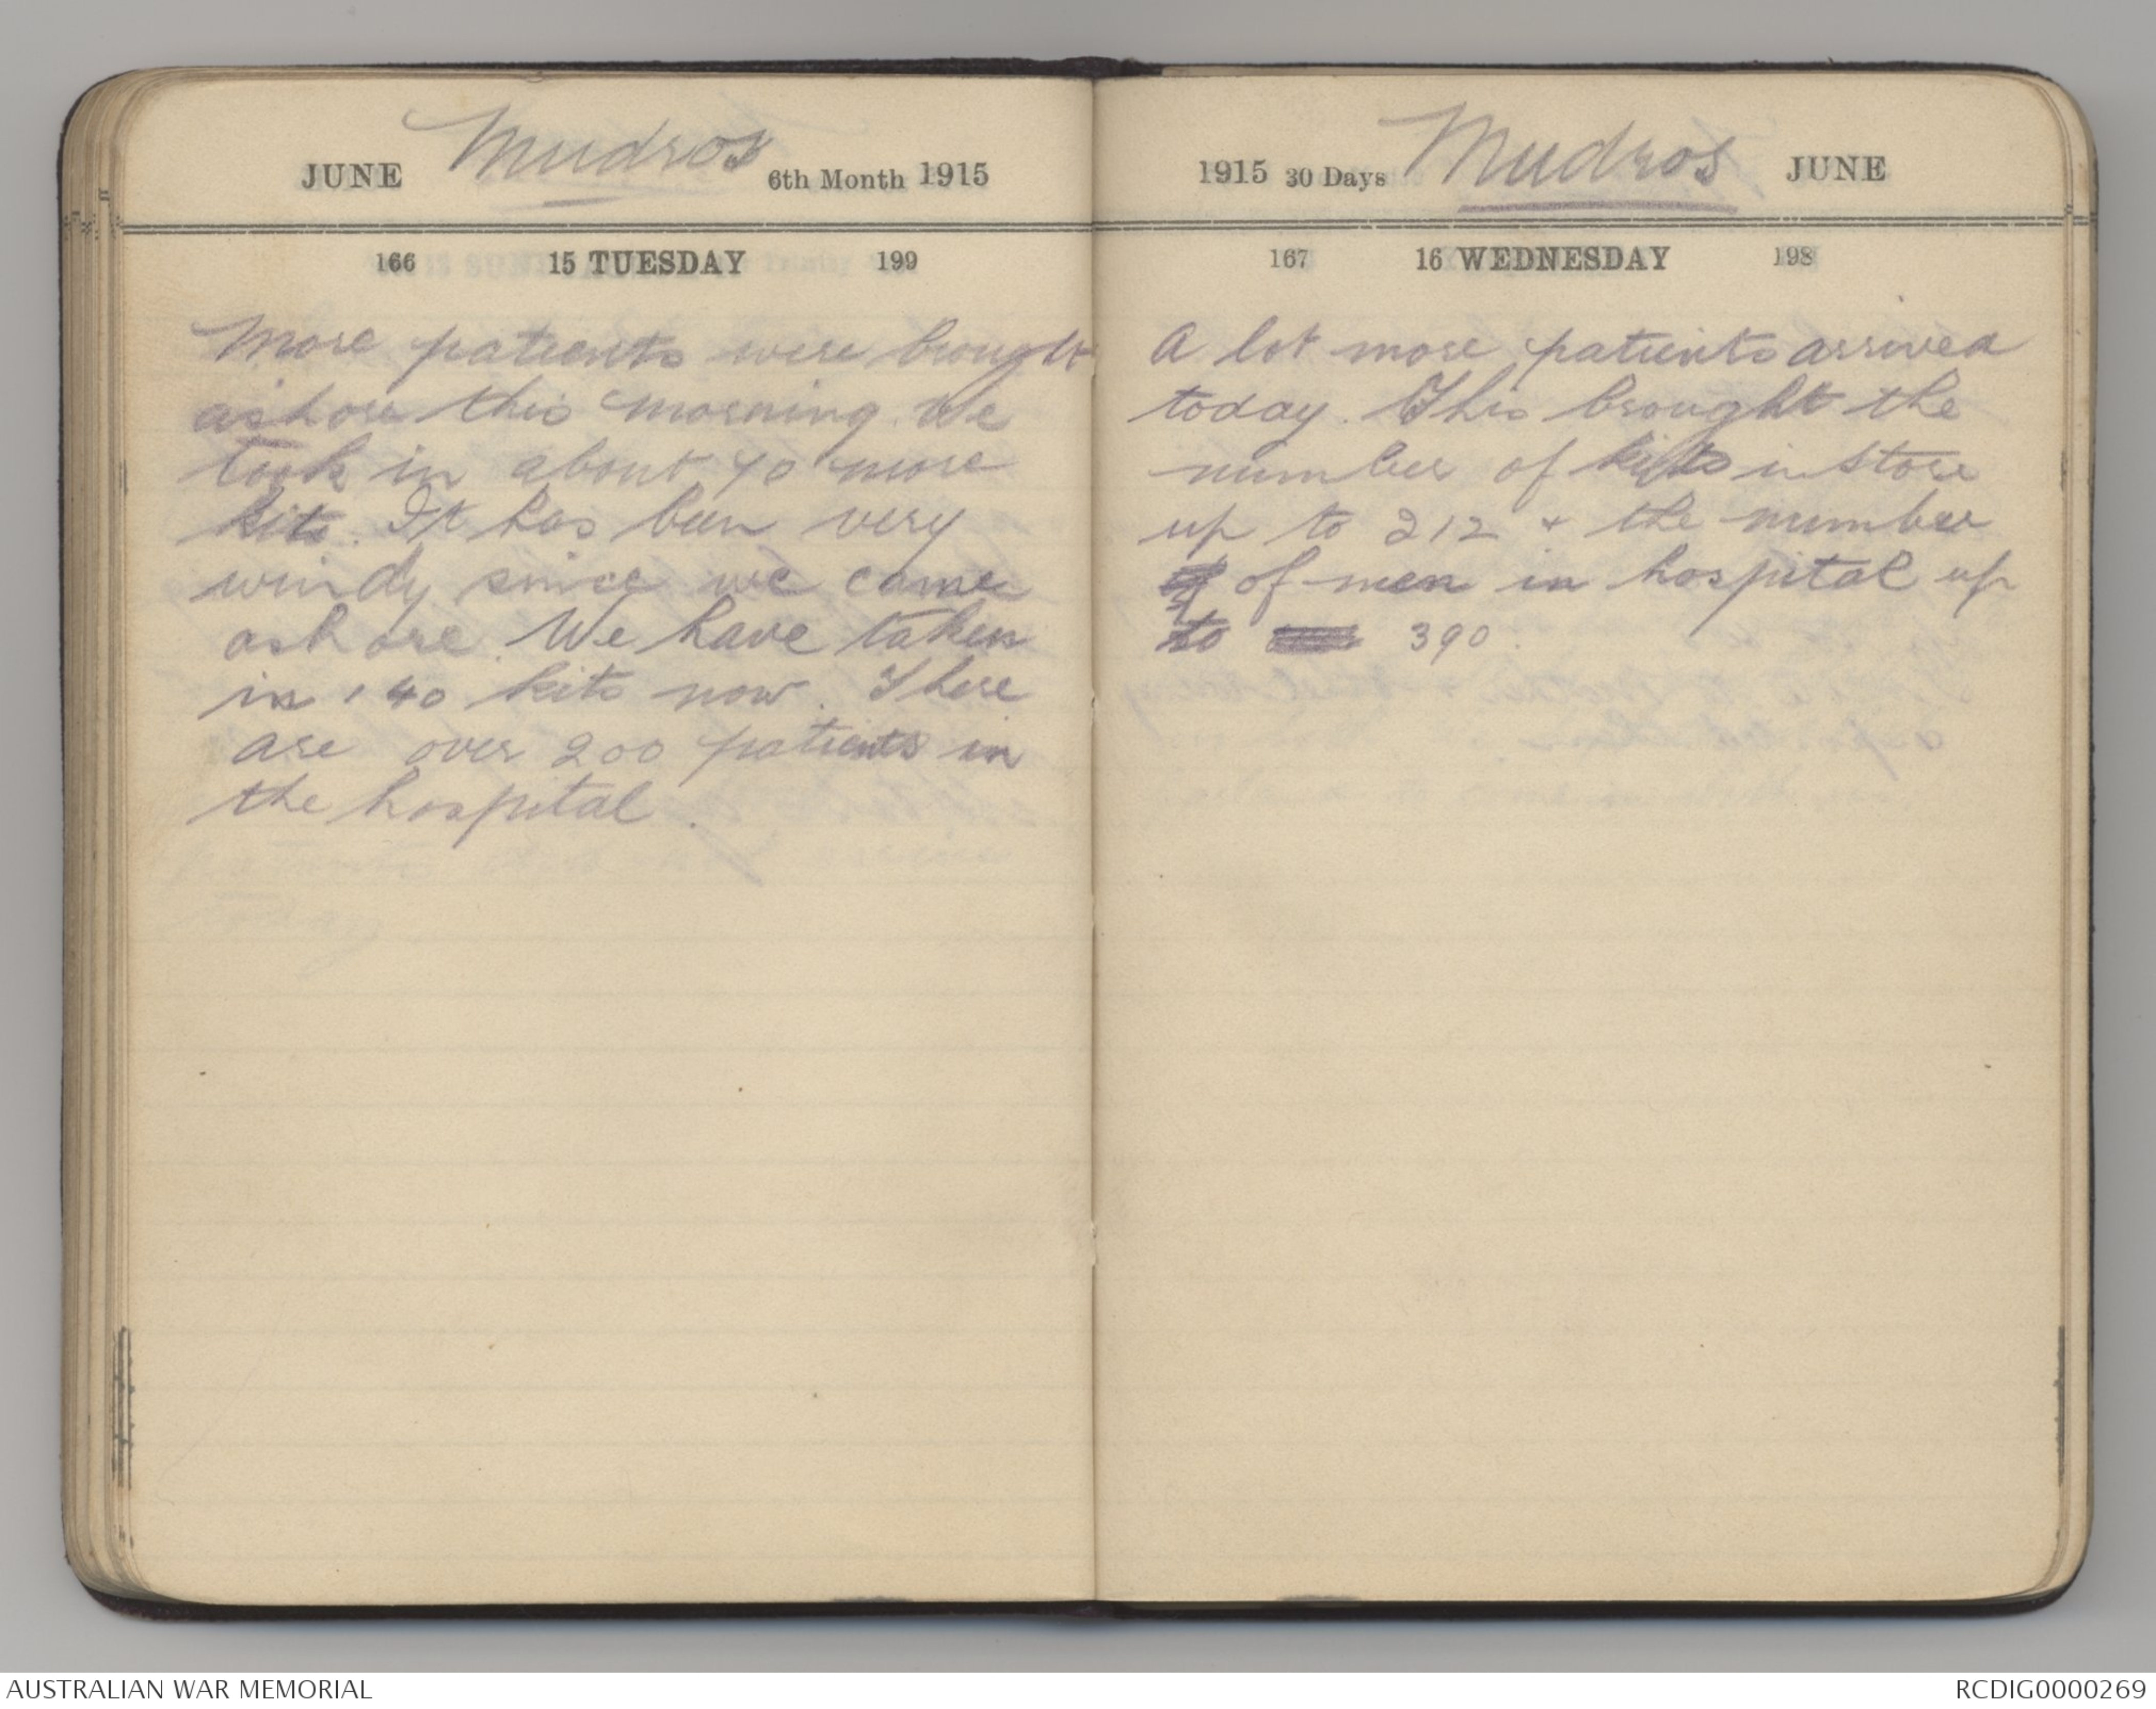 JUNE Mudros 6th Month 1915
166 15 TUESDAY 199
More patients were brought
ashore this morning. We
took in about 40 more
kits. It has been very
windy since we came
ashore. We have taken
in 140 kits now. There
are over 200 patients in
the hospital.
1915 30 Days Mudros JUNE
167 16 WEDNESDAY 198
A lot more patients arrived
today. This brought the
number of kits in store
up to 212 & the number
of men in hospital up
to 390.
AUSTRALIAN WAR MEMORIAL
RCDIG0000269